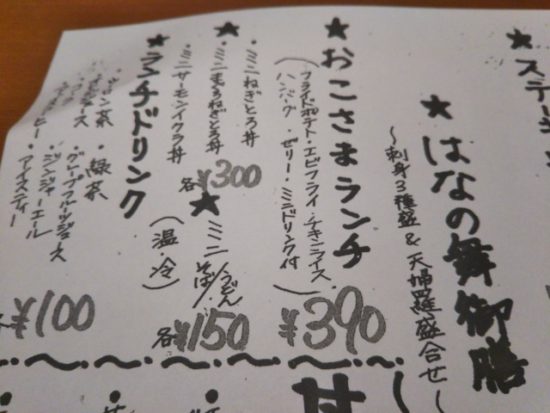 ★はなの舞御膳
〜刺身3種盛&天婦羅盛合せ〜
★おこさまランチ
(フライドポテト・エビフライ・チキンライス・
ハンバーグ・ゼリー・ミニドリンク付)
¥390
★
・ミニねぎとろ丼
・ミニまぐろねぎとろ丼
・ミニサーモンイクラ丼
各¥300
★ミニそば/うどん
(温・冷)
各¥150
★ランチドリンク
・緑茶
・グレープフルーツジュース
・ジンジャーエール
・アイスティー
¥100
丼